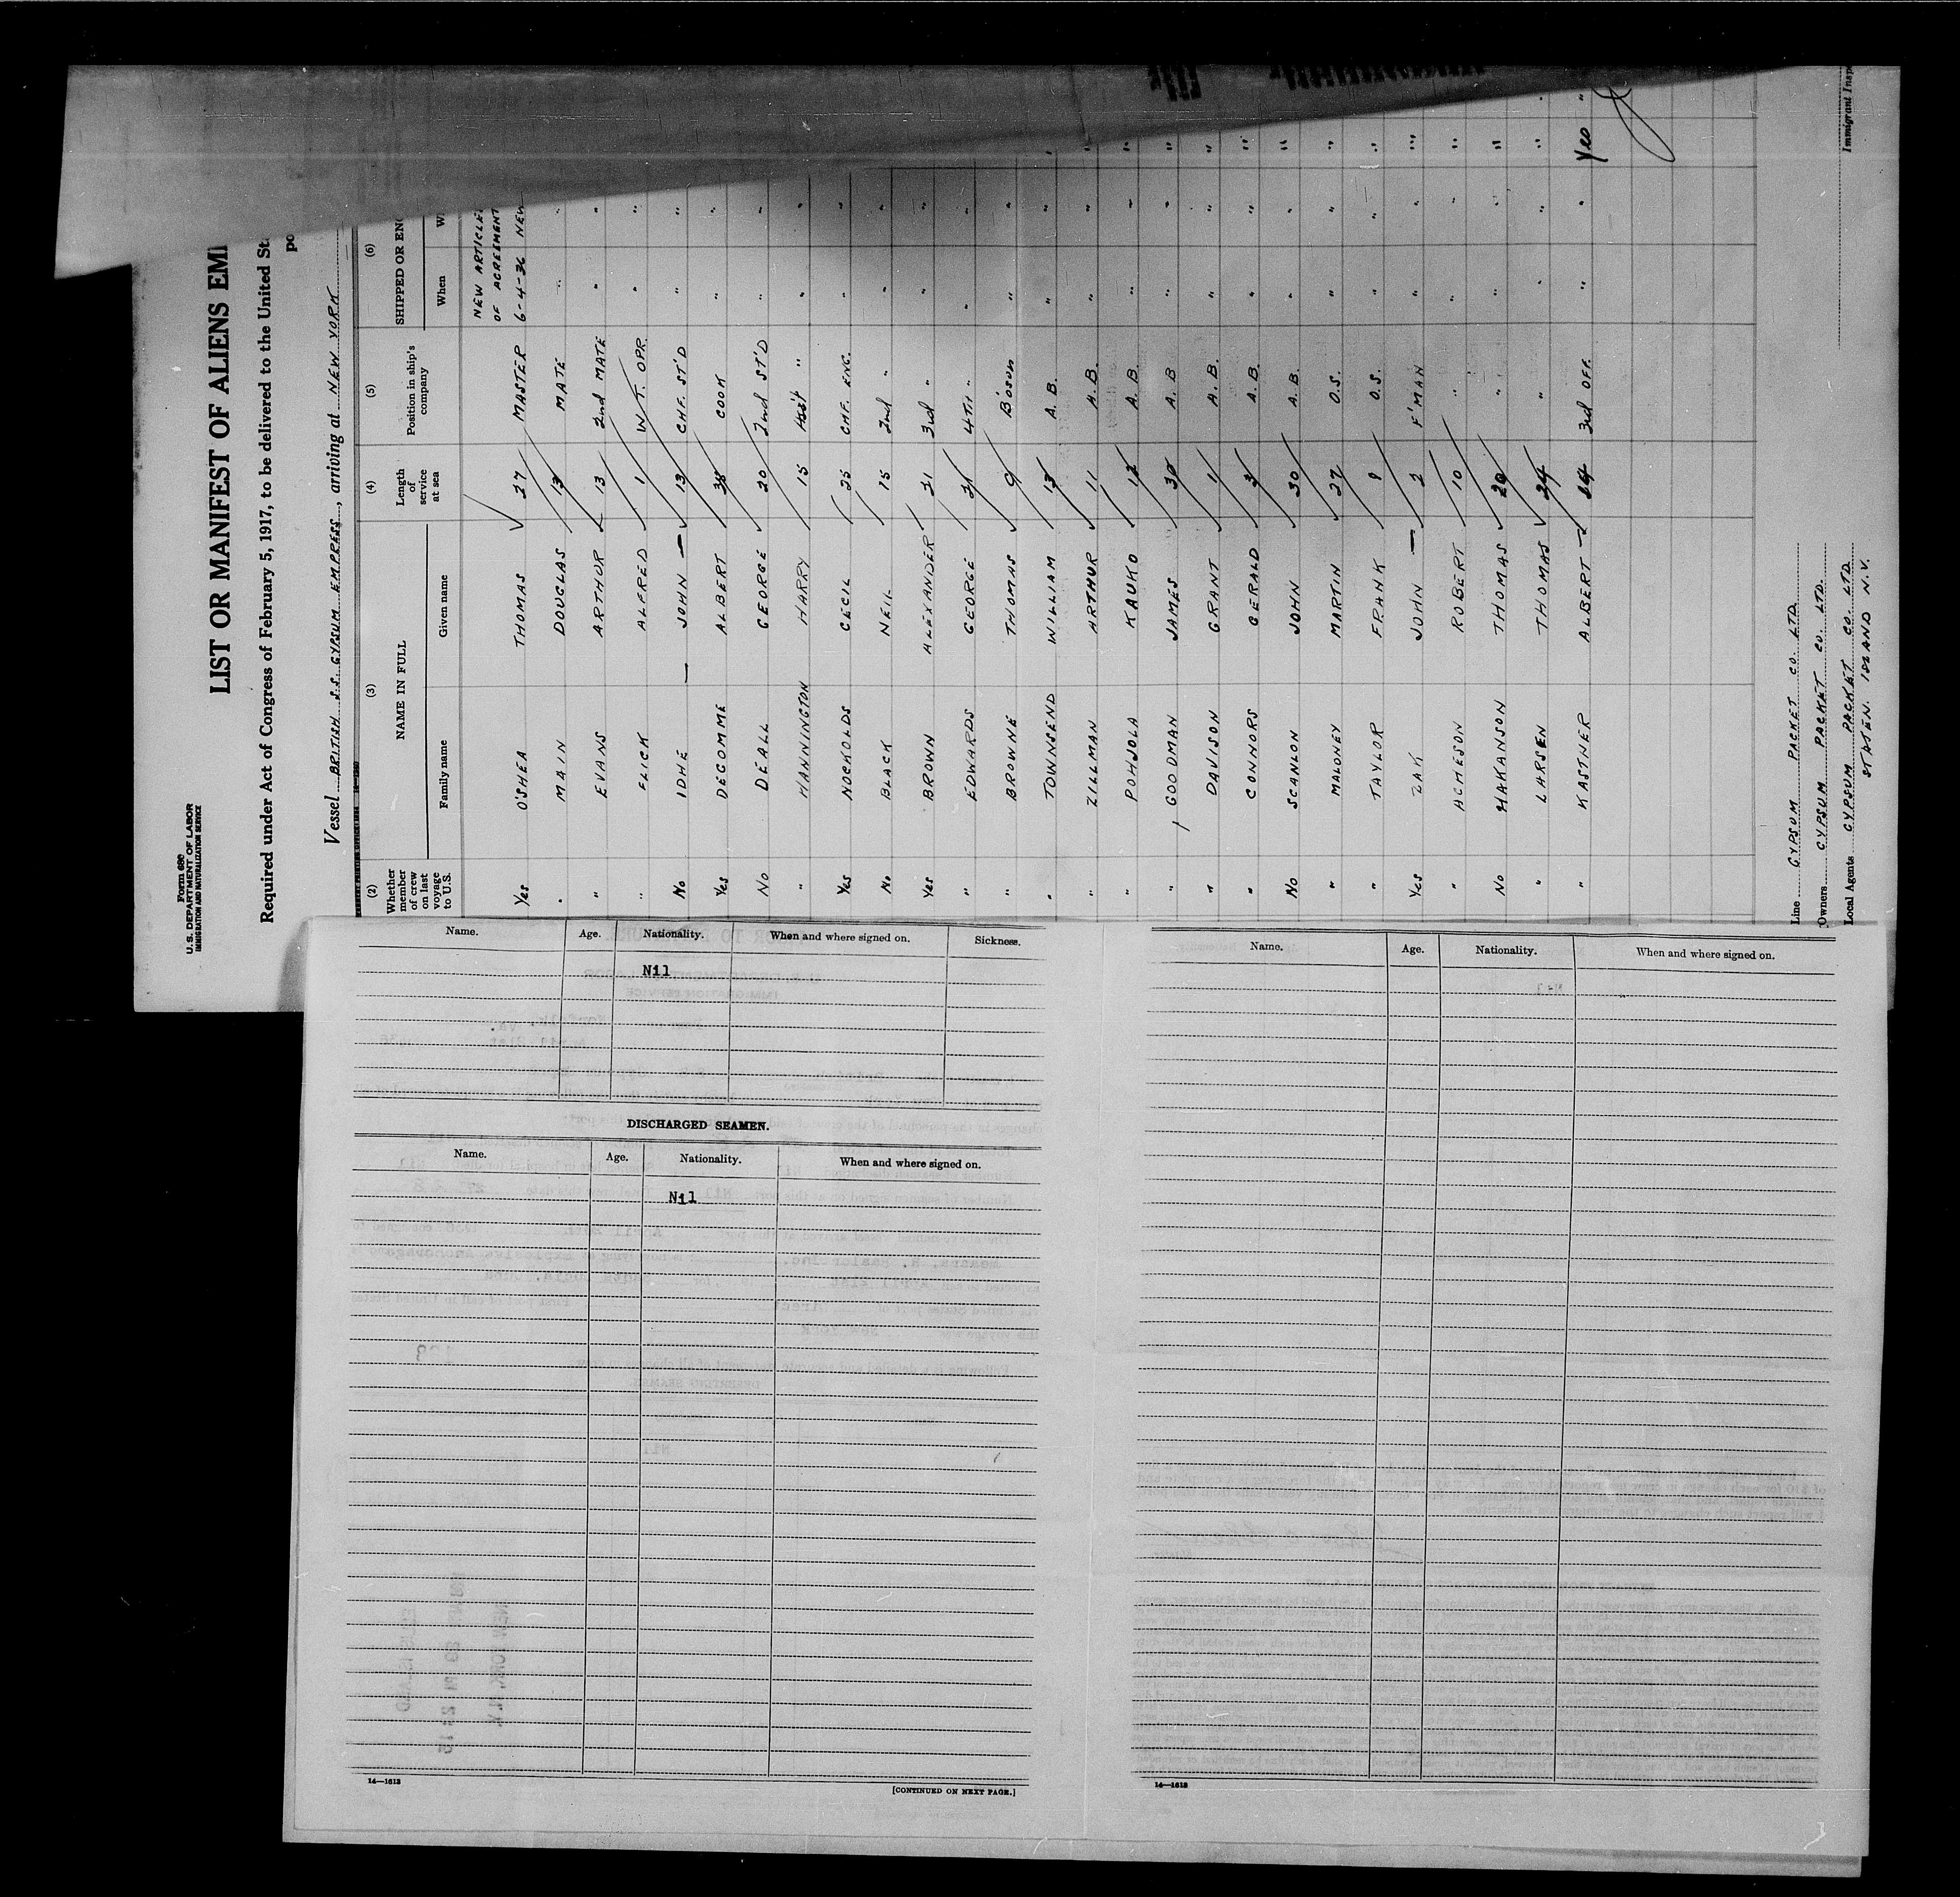 Form 680
U.S. DEPARTMENT OF LABOR
IMMIGRATION AND NATURALIZATION SERVICE
LIST OR MANIFEST OF ALIENS EM
Required under Act of Congress of February 5, 1917, to be delivered to the United Sta
po
Vessel BRITISH S.S. GYPSUM EMPRESS, arriving at NEW YORK
(2) (3) (4) (5) (6)
Whether member of crew on last voyage to U.S. NAME IN FULL Length of service at sea Position in ship's company SHIPPED OR ENG
Family name Given name When W
NEW ARTICLES
OF AGREEMENT
Yes O'SHEA THOMAS 27 MASTER 6-4-36 NEW
" MAIN DOUGLAS 13 MATE " "
" EVANS ARTHUR 13 2nd MATE " "
" FLICK ALFRED 1 W.T. OPR. " "
No IDHE — JOHN — 13 CHF. ST'D " "
Yes DECOMME ALBERT 38 COOK " "
No DEALL GEORGE 20 2nd ST'D " "
" HANNINGTON HARRY 15 " " "
Yes NOCKOLDS CECIL 25 CHF. ENG. " "
No BLACK NEIL 15 2nd " " "
Yes BROWN ALEXANDER 21 3rd " " "
" EDWARDS GEORGE 21 4TH " " "
" BROWNE THOMAS 9 B'OSUN " "
" TOWNSEND WILLIAM 13 A.B. " " "
" ZILLMAN ARTHUR 11 A.B. " " "
" POHJOLA KAUKO 12 A.B. " " "
" GOODMAN JAMES 30 A.B " " "
" DAVISON GRANT 1 A.B. " " "
" CONNORS GERALD 3 A.B. " " "
No SCANLON JOHN 30 A.B. " " "
" MALONEY MARTIN 27 O.S. " " "
" TAYLOR FRANK 9 O.S. " " "
Yes ZAK JOHN — 2 F'MAN " " "
" ACHESON ROBERT 10 " " " "
No HAKANSON THOMAS 20 " " " "
" LARSEN THOMAS 24 " " " "
" KASTNER ALBERT 14 3rd OFF. " " Yes "
Line GYPSUM PACKET CO. LTD
Owners GYPSUM PACKET CO. LTD.
Local Agents GYPSUM PACKET CO. LTD.
STATEN ISLAND N.Y.
Immigrant Insp
Name. Age. Nationality. When and where signed on. Sickness.
Nil
DISCHARGED SEAMEN.
Name. Age. Nationality. When and where signed on.
Nil
14—1613
[CONTINUED ON NEXT PAGE.]
Name. Age. Nationality. When and where signed on.
14—1613